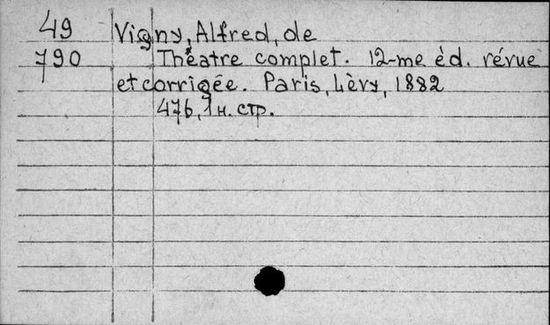 49 Vigny, Alfred, de
790 Théatre complet. 12-me èd. révue
et corrigée. Paris, Lèvy, 1882
476, 1 н. стр.